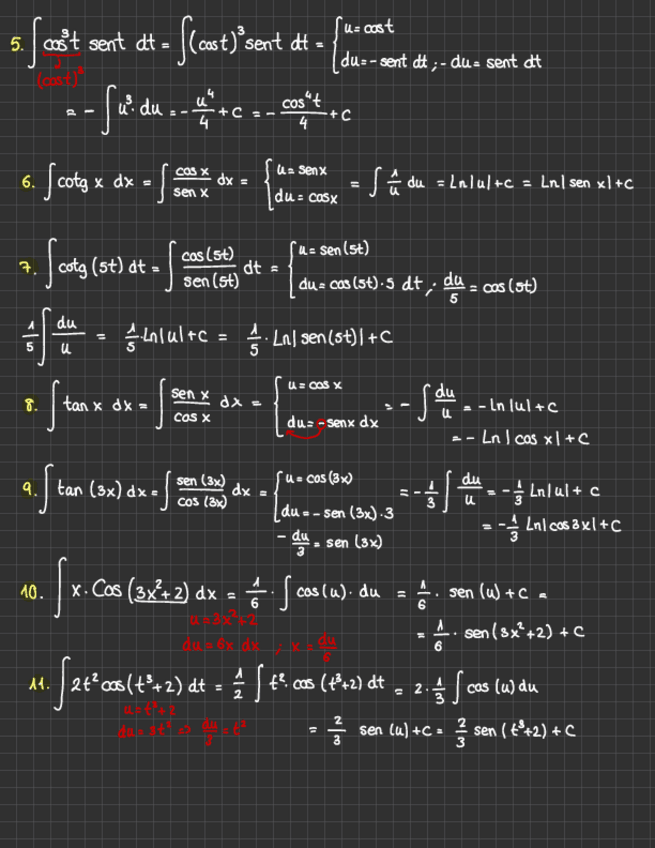 5. ∫ cos³t sent dt = ∫(cost)³ sent dt = { u = cost
du = - sent dt ; - du = sent dt
(cost)³
= - ∫ u³. du = - u⁴/4 + C = - cos⁴t/4 + C
6. ∫ cotg x dx = ∫ cos x/sen x dx = { u = senx
du = cosx
= ∫ 1/u du = Ln|u|+C = Ln|sen x|+C
7. ∫ cotg (5t) dt = ∫ cos(5t)/sen(5t) dt = { u = sen(5t)
du = cos(5t)·5 dt ; du/5 = cos(5t)
1/5 ∫ du/u = 1/5·Ln|u|+C = 1/5 · Ln|sen(5t)|+C
8. ∫ tan x dx = ∫ sen x/cos x dx = { u = cos x
du = -senx dx
= - ∫ du/u = - ln|u|+C
= - Ln|cos x|+C
9. ∫ tan (3x) dx = ∫ sen (3x)/cos (3x) dx = { u = cos(3x)
du = - sen (3x)·3
- du/3 = sen (3x)
= - 1/3 ∫ du/u = - 1/3 Ln|u|+ C
= - 1/3 Ln|cos3x|+C
10. ∫ x. Cos (3x²+2) dx = 1/6 · ∫ cos(u)· du = 1/6 · sen (u)+C =
u = 3x²+2
du = 6x dx ; x = du/6
= 1/6 · sen(3x²+2) + C
11. ∫ 2t² cos(t³+2) dt = 1/2 ∫ t². cos (t³+2) dt = 2·1/3 ∫ cos (u) du
u = t³+2
du = 3t² => du/3 = t²
= 2/3 sen (u)+C = 2/3 sen (t³+2) + C